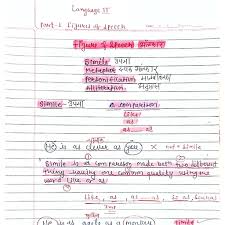 Language II
Part-1 Figures of Speech
Figures of Speech अलंकार
Simile उपमा
Metaphor रूपक अलंकार
Personification मानवीकरण
Alliteration अनुप्रास
Simile - उपमा A comparison
like
as
as as
He is as clever as you x not = simile
Simile is a comparison made between two different
things usually one common quality using the
word like or as.
like, as, as as, so,
He is as agile as a monkey simile